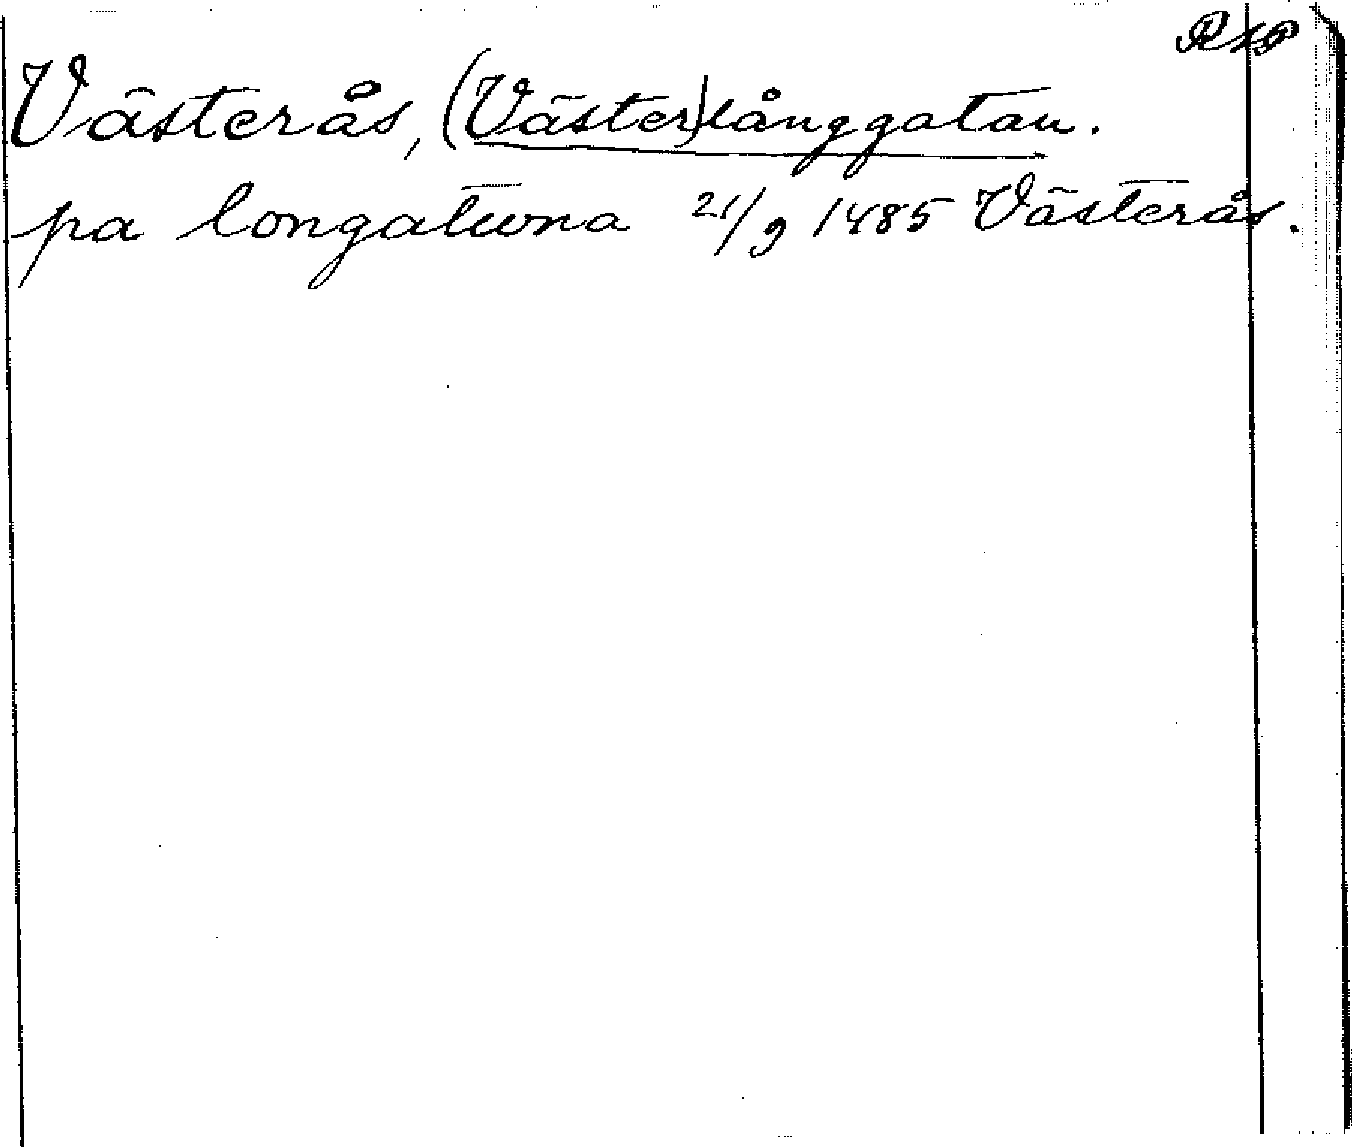 RAP
Västerås, (Väster)långgatan.
pa longatwna 21/9 1485 Västerås.